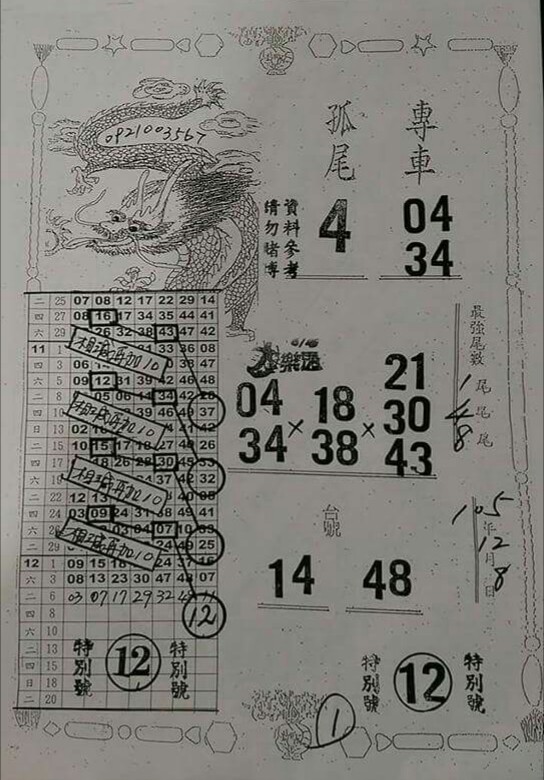 0921003567
孤尾 專車
資料參考
请勿賭博
4 04
34
二 25 07 08 12 17 22 29 14
四 27 08 16 17 34 35 44 41
六 29 26 32 38 43 47 42
11 1 33 36 08
相減再加10
四 3 06 36 47
六 5 09 12 31 39 42 46 48
二 8 05 06 34 42
相減再加10
四 10 39 46 49 37
日 13 02
二 15 10 15 17 18 27 49 26
四 17 18 26 28 30
相減再加10
六 19 37 42 32
二 22 12 13
四 24 03 09 24 31 38 49 41
六 26 03 04 07 10
相減再加10
二 29 25
12 1 09 15 24 37
六 3 08 13 23 30 47 48 07
二 6 03 07 17 29 32
四 8 12
六 10
二 13
四 15
日 18
二 20
特別號 12 特別號
最強尾數
1尾
4尾
8尾
大樂透
04 34 × 18 38 × 21 30 43
台號
14 48
105年
12月
8日
特別號 12 特別號
1